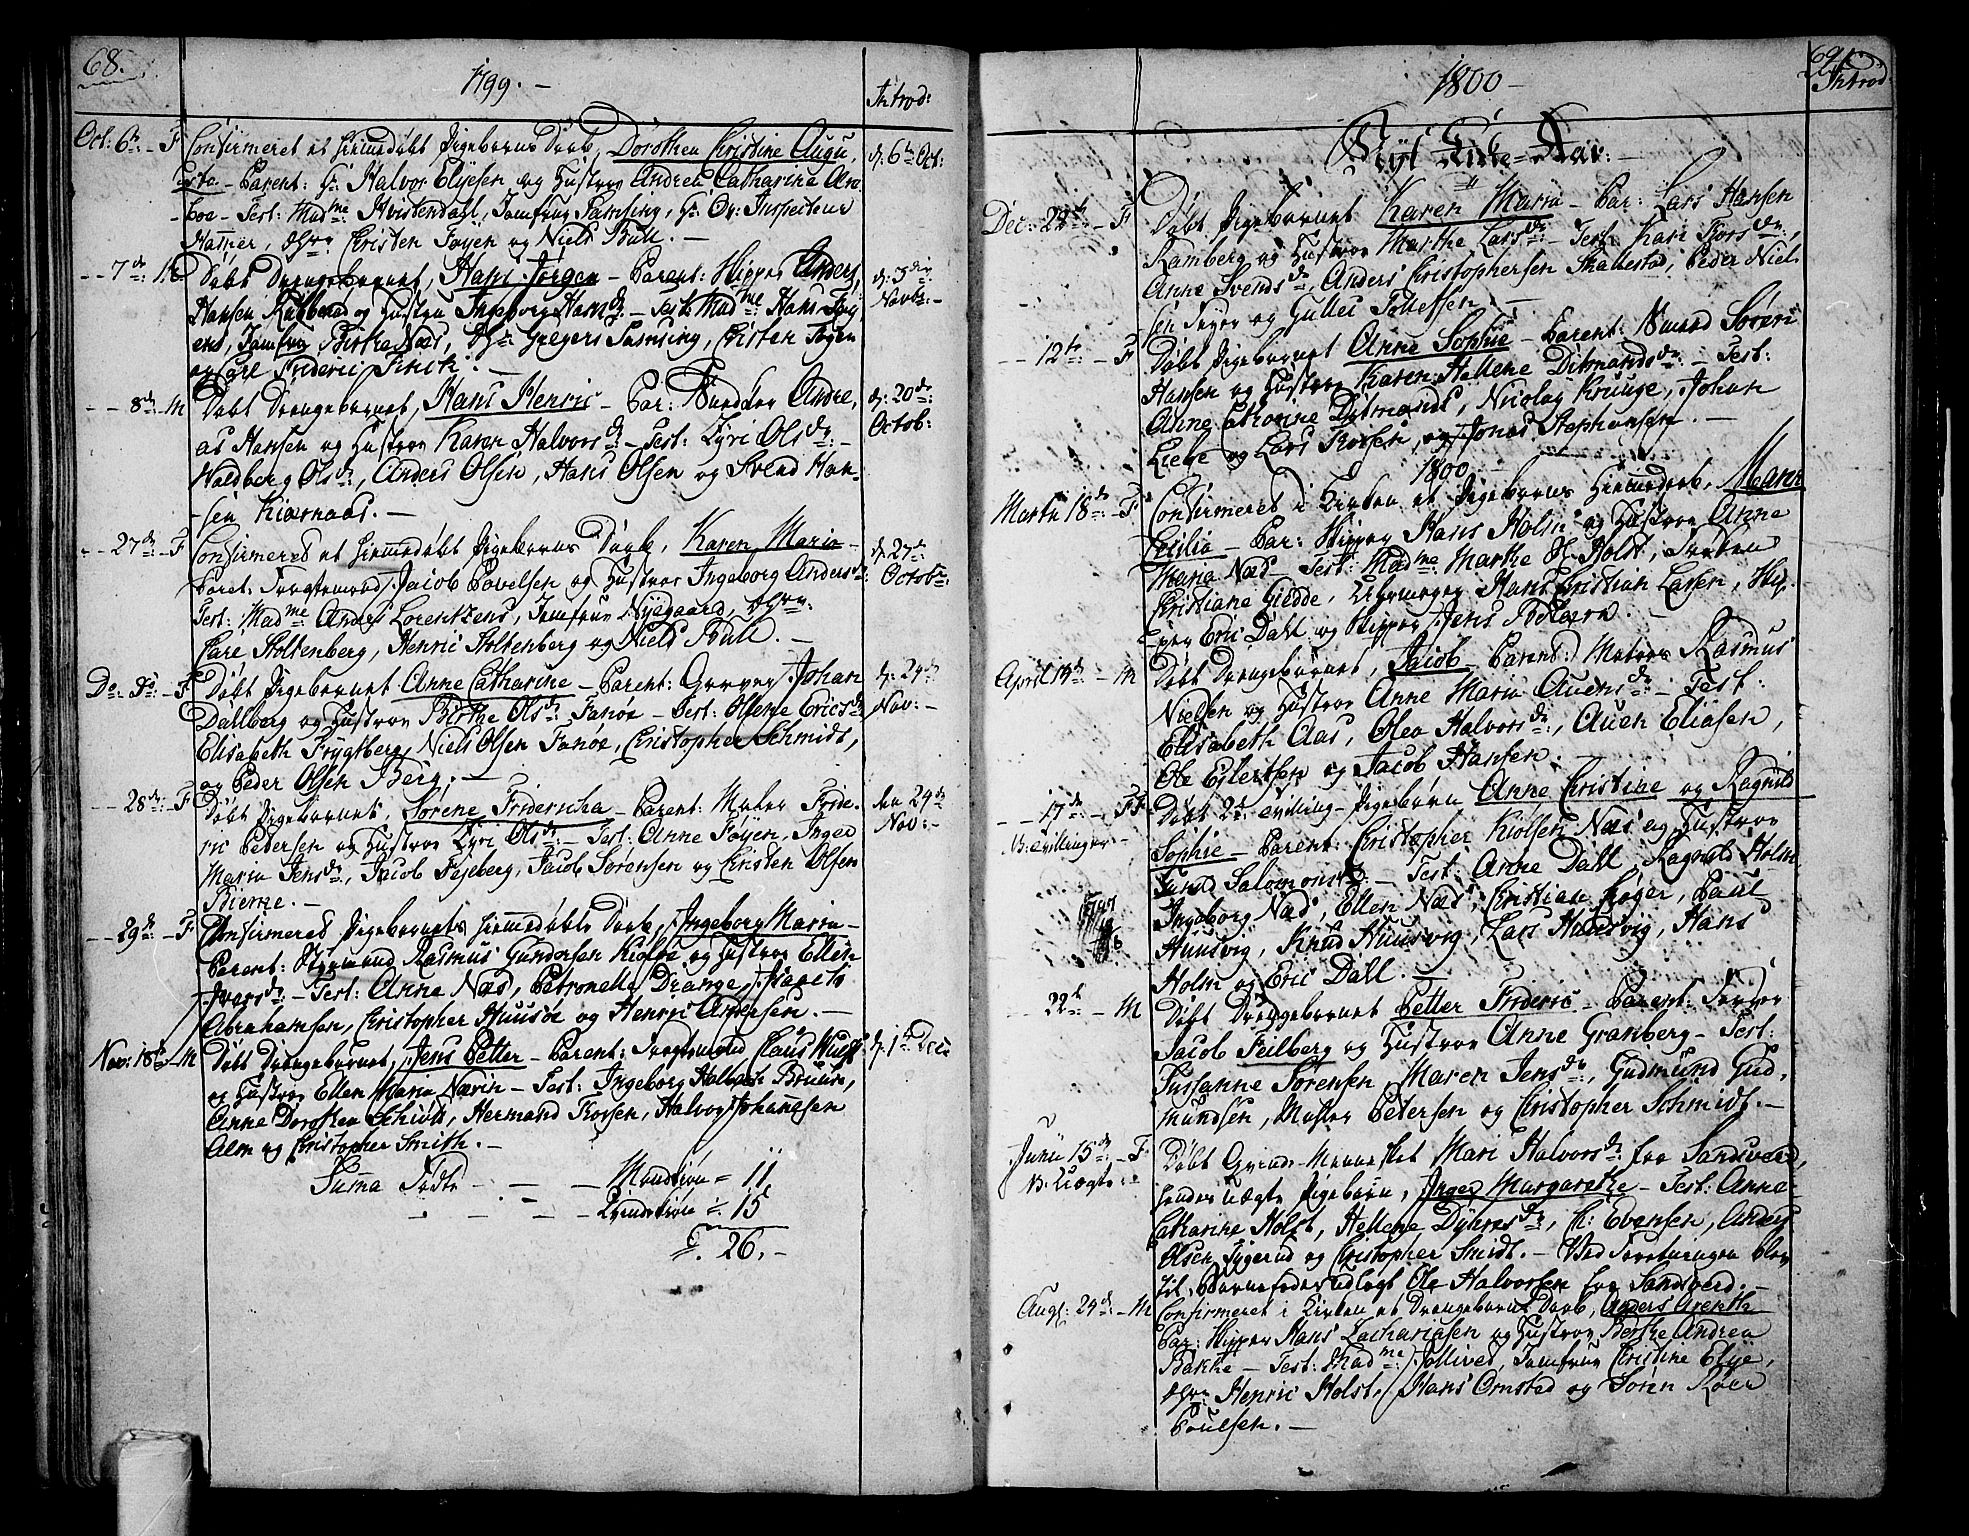 68.
1799. –
Introd:
Oct: 6te – F
Confirmeret et hiemedøbt Pigebarns Daab, Dorothea Christine Augu,
sta – Parent: Hr Halvor Elijesen og Hustroe Andrea Catharine Arn
boe – Test: Madme: Qvistendall, Jomfrue Samsing, Hr Ov: Inspecteur
og Christen Føyen og Niels Bull. –
d: 6te Oct:
– – 7de: M
Døbt Drengebarnet, Hans Jørgen – Parent: Skipper Anders
Hansen og Hustrue Ingeborg Hansdr: – Test: Madme Hans Føy
ens, Jomfrue Birthe Næs, Hr Gregers Samsing, Christen Føyen
og Carl Frideric :–
d: 3die
Novbr: –
– – 8de M
Døbt Drengebarnet, Hans Henric – Par: Andre,
as Hansen og Hustroe Karen Halvorsdr – Test: Kyri Olsdr: –
Waldberg Olsdr:, Anders Olsen, Hans Olsen og Svend Han-
sen Kiærnaas. –
d: 20de:
Octob:
– – 27de: – F
Confirmered et hiemedøbt Pigebarns Daab, Karen Maria –
Parent: Fragtemand Jacob Povelsen og Hustroe Ingeborg Andersdr:
Test: Madme Anders Lorentzens, Jomfrue Nyegaard, Hrr:
Carl Stoltenberg, Henric Stoltenberg og Niels Bull. –
d: 27de
Octobr:
Do: Do: – F
Døbt Pigebarnet Anne Catharine – Parent: Garver Johan
Dallberg og Hustroe Birthe Olsdr: Fanøe – Test: Ollene Ericsdr
Elisabeth Frygtberg, Niels Olsen Fanøe, Christopher Schmidt,
og Peder Olsen Berg. –
d: 24de
Nov: –
– – 28de: – F
Døbt Pigebarnet, Sørene Fridericha – Parent: Matros Fride-
ric Pedersen og Hustroe Kyri Olsdr: – Test: Anne Føyen, Inger
Maria Jensdr:, Jacob Fejeberg, Jacob Sørensen og Christen Olsen
Bierne. –
den 24de
Nov: –
– – 29de: – F
Confirmered Pigebarnets hiemmedøbte Daab, Ingeborg Maria –
Parent: Styrmand Rasmus Gundersen Kiolse og Hustroe Ellen
Iversdr: – Test: Anne Næs, Petronelle Drange,
Abrahamsen, Christopher Huusøe og Henric Andersen. –
Nov: 18de – M
Døbt Drengebarnet, Jens Petter – Parent: Fragtemand Claus Wulff
og Hustroe Ellen Maria Nærin – Test: Ingeborg Bruun,
Anne Dorothea Schiøtt, Hermand Krofsen, Halvor Johannesen
Alm og Christopher Smith. –
d: 1te Dec:
Suma Fødte – – – Mandkiøn = 11
– – – Qvindekiøn = 15
26. –
1800 –
69.
Introd:
Nyt Kirke=Aar: –
Dec: – F
Døbt Pigebarnet Karen Maria – Par: Lars Hansen
Ramberg og Hustroe Marthe Larsdr: – Test: Kari Torsdr:,
Anne Svendsdr, Anders Christophersen Skallestad, Peder Niel-
sen og Gulles Tollefsen. –
– – 12te – F
Døbt Pigebarnet Anne Sophie – Parent: Søren
Hansen og Hustroe Karen Hellene Ditmandsdr: – Test:
Anne Cathrine Dytmands, Nicolay Kruuse, Johan
og Lars Krofsen, og Jonas Stephansen. –
1800.
Martii 18de – F
Confirmeret i Kirken et Pigebarns hiemedaab, Maren
Cecilia – Par: Skipper Hans Holm og Hustroe Anne
Maria Næs – Test: Madme: Marthe Holst, Froken
Christiane Giedde, Hans Christian Larsen, Skip-
per Eric Dahl og Skipper Jens –
April 14de – M
Døbt Drengebarnet, Jacob – Parent: Matros Rasmus
Nielsen og Hustroe Anne Maria Auensdr: – Test:
Elisabeth Aas, Olea Halvorsdr:, Auen Eliasen,
Ole Eilertsen og Jacob Hansen. –
– – 17de – FF
N: Tvillinger –
Døbt 2de Tvilling-Pigebørn Anne Christine og Ragnild
Sophie – Parent: Christopher Kiølsen Næs og Hustroe
Salomonsdr – Test: Anne Dahl, Ragnild Holm
Ingeborg Næs, Ellen Næs, Christian Krøger, Paul
Huusvig, Knud Huusvig, Lars Huusvig, Hans
Holm og Eric Dahl. –
– – 22de – M
Døbt Drengebarnet Petter Frideric – Parent: Farver
Jacob Feilberg og Hustroe Anne Gramberg – Test:
Susanne Sørensen, Maren Jensdr:, Gudmund Gud,
mundsen, Petersen og Christopher Schmidt. –
Junii 15de – F
N: Uægte: –
Døbt Qvinde-Mennesket Mari Halvorsdr: fra Sandsverd,
hendes uægte Pigebarn, Inger Margarethe – Test: Anne
Catharine Holst, Hellene Dyhresdr:, C: Evensen, Anders
Olsen og Christopher Smidt. – Ved Forretningen blev
til Barnefader udlagt Ole Halvorsen fra Sandsverd. –
Augl: 24de: – M
Confirmeret i Kirken et Drengebarns Daab, Anders Arenth
Par: Skipper Hans Zachariasen og Hustroe Berthe Andrea
Bakke – Test: Madme: Jollived, Jomfrue Christine Elye,
Hrr: Henric Holst, Hans Ornsted og Søren Roer
Poulsen. –